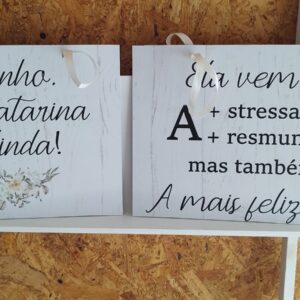 inho.
atarina
inda!
Ela vem
A + stressa
+ resmun
mas também
A mais feliz